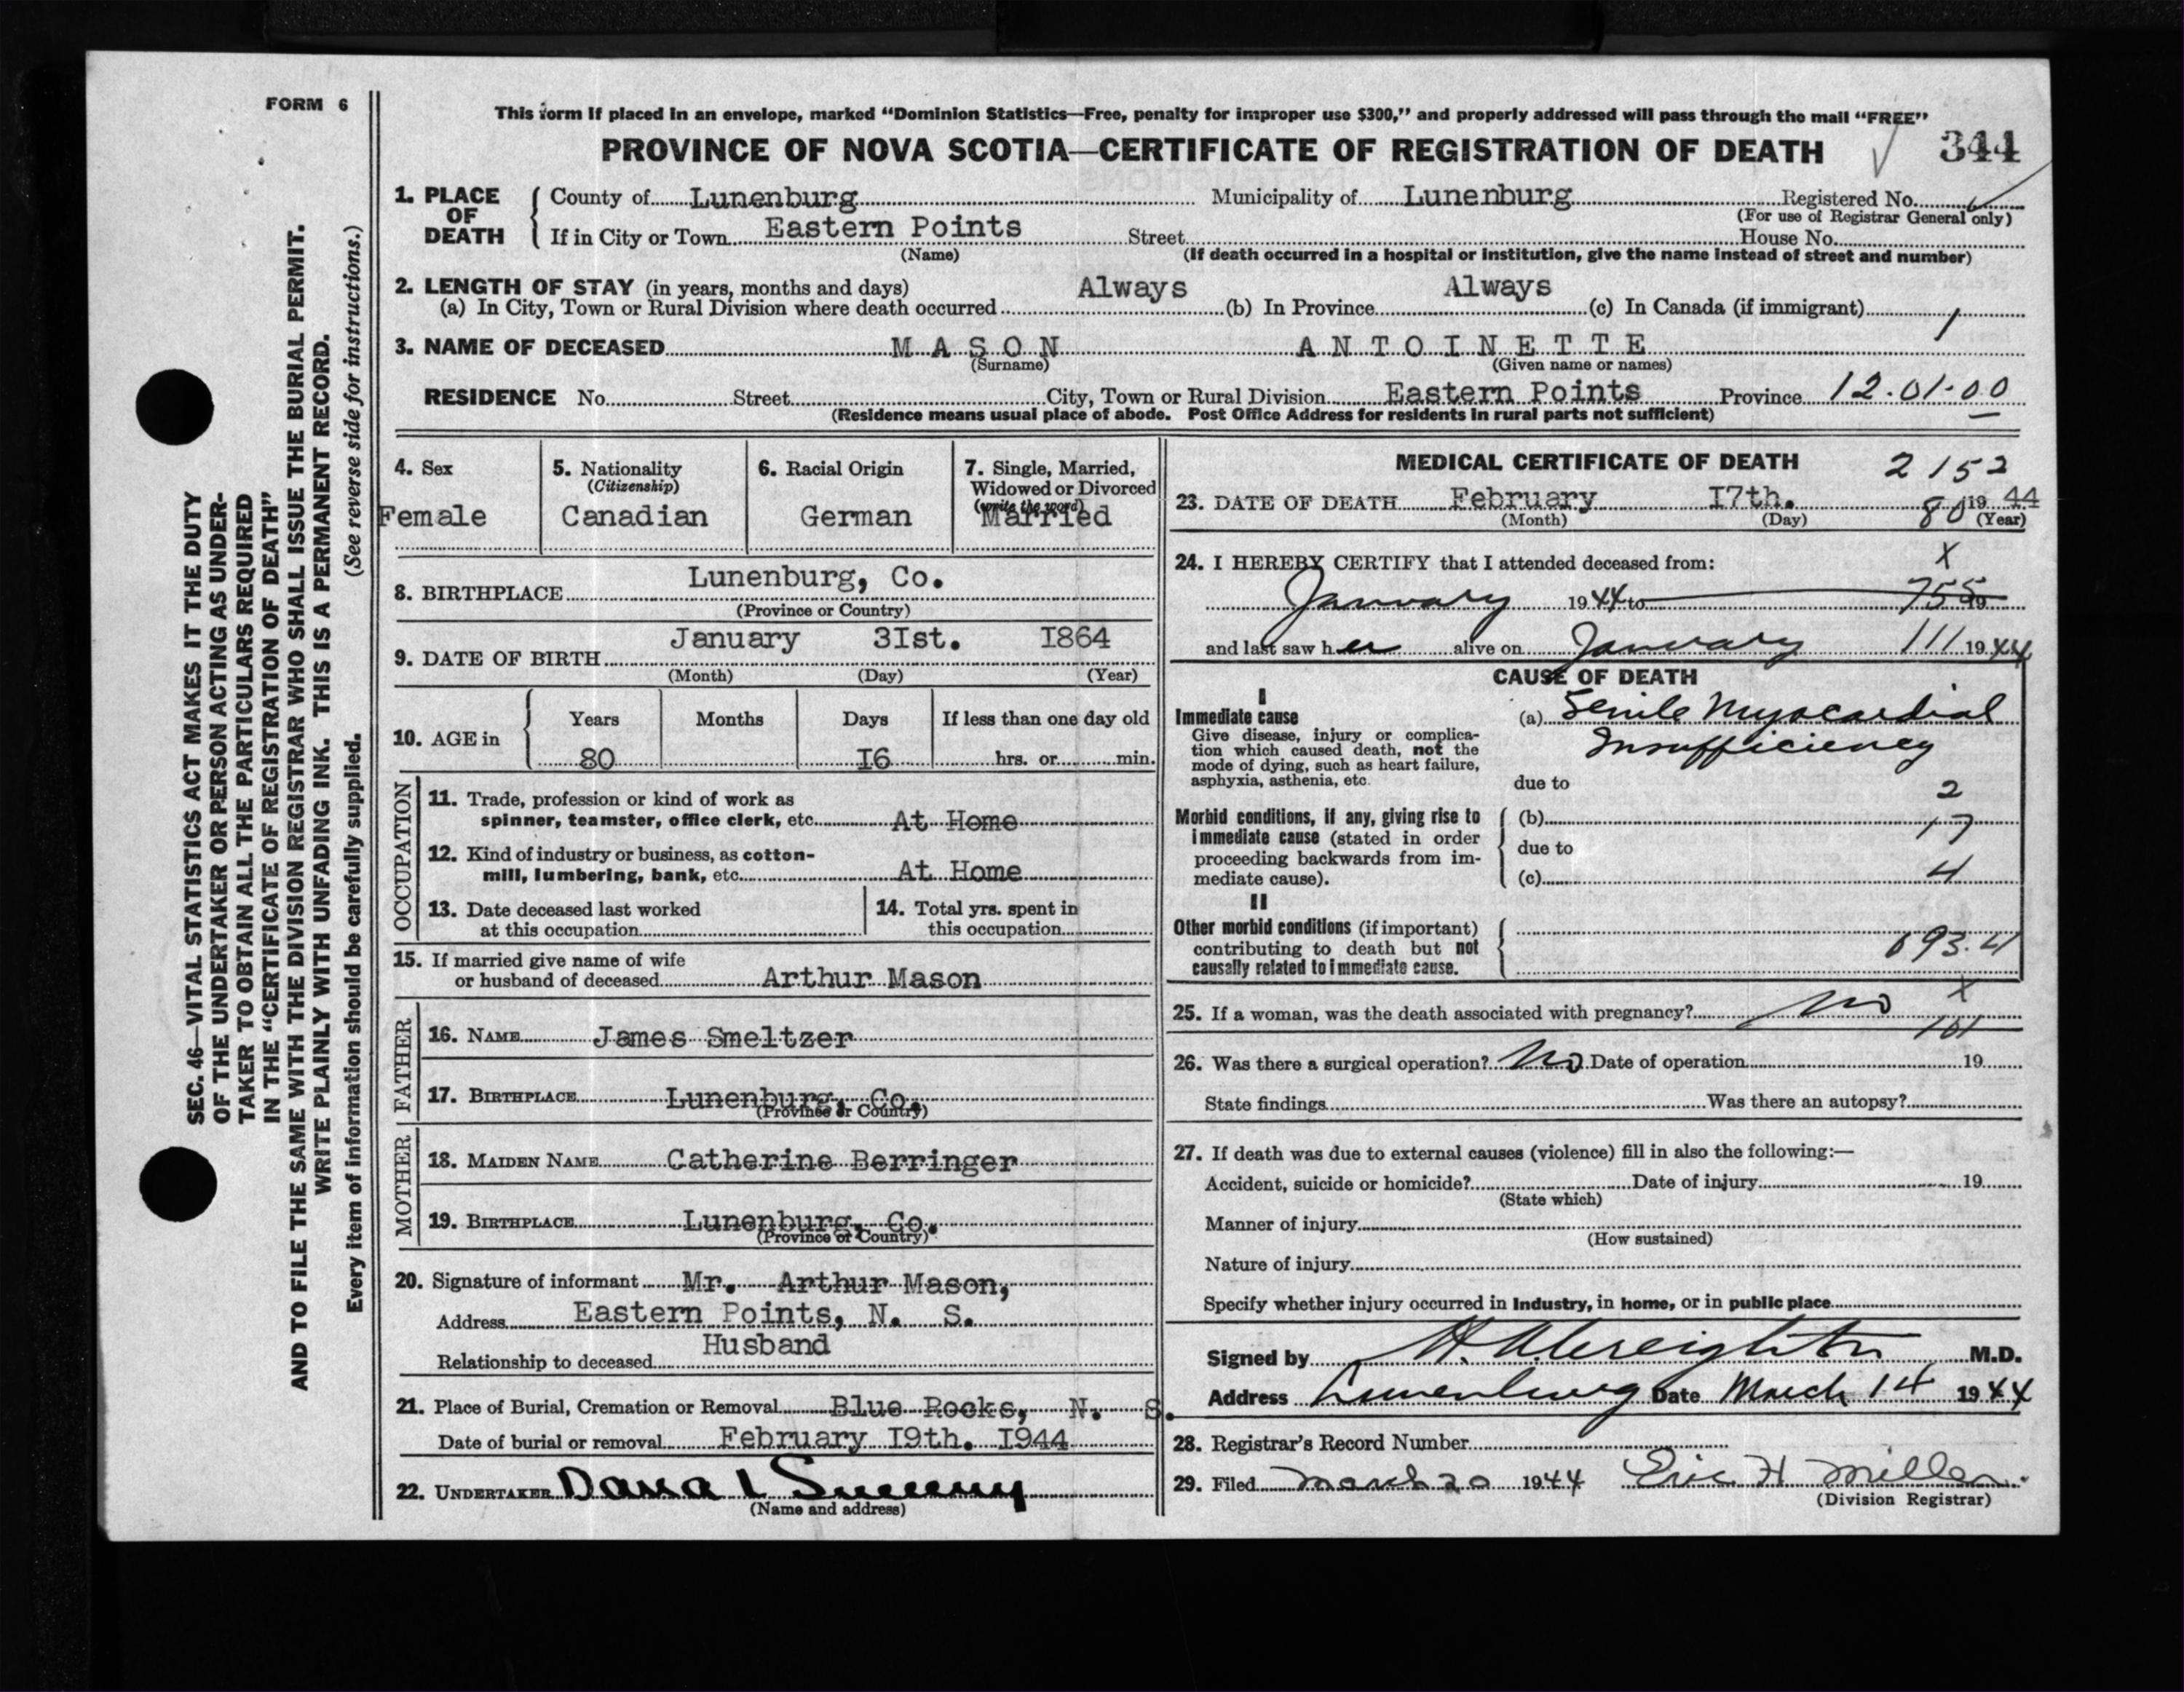 FORM 6
This form if placed in an envelope, marked “Dominion Statistics—Free, penalty for improper use $300,” and properly addressed will pass through the mail “FREE”
PROVINCE OF NOVA SCOTIA—CERTIFICATE OF REGISTRATION OF DEATH 344
1. PLACE OF DEATH
County of Lunenburg Municipality of Lunenburg Registered No.
(For use of Registrar General only)
If in City or Town Eastern Points Street House No.
(Name) (If death occurred in a hospital or institution, give the name instead of street and number)
2. LENGTH OF STAY (in years, months and days)
(a) In City, Town or Rural Division where death occurred Always (b) In Province Always (c) In Canada (if immigrant)
3. NAME OF DECEASED MASON ANTOINETTE
(Surname) (Given name or names)
RESIDENCE No. Street City, Town or Rural Division Eastern Points Province 12.01.00
(Residence means usual place of abode. Post Office Address for residents in rural parts not sufficient)
4. Sex
Female
5. Nationality
(Citizenship)
Canadian
6. Racial Origin
German
7. Single, Married,
Widowed or Divorced
(write the word)
Married
8. BIRTHPLACE Lunenburg, Co.
(Province or Country)
9. DATE OF BIRTH January 3Ist. I864
(Month) (Day) (Year)
10. AGE in
Years Months Days If less than one day old
80 I6 hrs. or min.
OCCUPATION
11. Trade, profession or kind of work as
spinner, teamster, office clerk, etc. At Home
12. Kind of industry or business, as cotton-
mill, lumbering, bank, etc. At Home
13. Date deceased last worked
at this occupation
14. Total yrs. spent in
this occupation
15. If married give name of wife
or husband of deceased Arthur Mason
FATHER
16. NAME James Smeltzer
17. BIRTHPLACE Lunenburg, Co.
(Province or Country)
MOTHER
18. MAIDEN NAME Catherine Berringer
19. BIRTHPLACE Lunenburg, Co.
(Province or Country)
20. Signature of informant Mr. Arthur Mason,
Address Eastern Points, N. S.
Relationship to deceased Husband
21. Place of Burial, Cremation or Removal Blue Rocks, N. S.
Date of burial or removal February I9th. I944
22. UNDERTAKER Dana L Sweeny
(Name and address)
MEDICAL CERTIFICATE OF DEATH 2152
23. DATE OF DEATH February I7th. 80 19 44
(Month) (Day) (Year)
24. I HEREBY CERTIFY that I attended deceased from: X
January 1944 to 755 19
and last saw her alive on January 111 1944
CAUSE OF DEATH
I
Immediate cause
Give disease, injury or complica-
tion which caused death, not the
mode of dying, such as heart failure,
asphyxia, asthenia, etc.
(a) Senile Myocardial
Insufficiency
due to
2
Morbid conditions, if any, giving rise to
immediate cause (stated in order
proceeding backwards from im-
mediate cause).
(b) 17
due to
(c) 4
II
Other morbid conditions (if important)
contributing to death but not
causally related to immediate cause.
093.4
X
25. If a woman, was the death associated with pregnancy? no
101
26. Was there a surgical operation? No Date of operation 19
State findings Was there an autopsy?
27. If death was due to external causes (violence) fill in also the following:—
Accident, suicide or homicide? Date of injury 19
(State which)
Manner of injury
(How sustained)
Nature of injury
Specify whether injury occurred in Industry, in home, or in public place
Signed by H. A. Creighton M.D.
Address Lunenburg Date March 14 1944
28. Registrar's Record Number
29. Filed March 20 1944 Eric H Miller
(Division Registrar)
SEC. 46—VITAL STATISTICS ACT MAKES IT THE DUTY
OF THE UNDERTAKER OR PERSON ACTING AS UNDER-
TAKER TO OBTAIN ALL THE PARTICULARS REQUIRED
IN THE “CERTIFICATE OF REGISTRATION OF DEATH”
AND TO FILE THE SAME WITH THE DIVISION REGISTRAR WHO SHALL ISSUE THE BURIAL PERMIT.
WRITE PLAINLY WITH UNFADING INK. THIS IS A PERMANENT RECORD.
Every item of information should be carefully supplied. (See reverse side for instructions.)